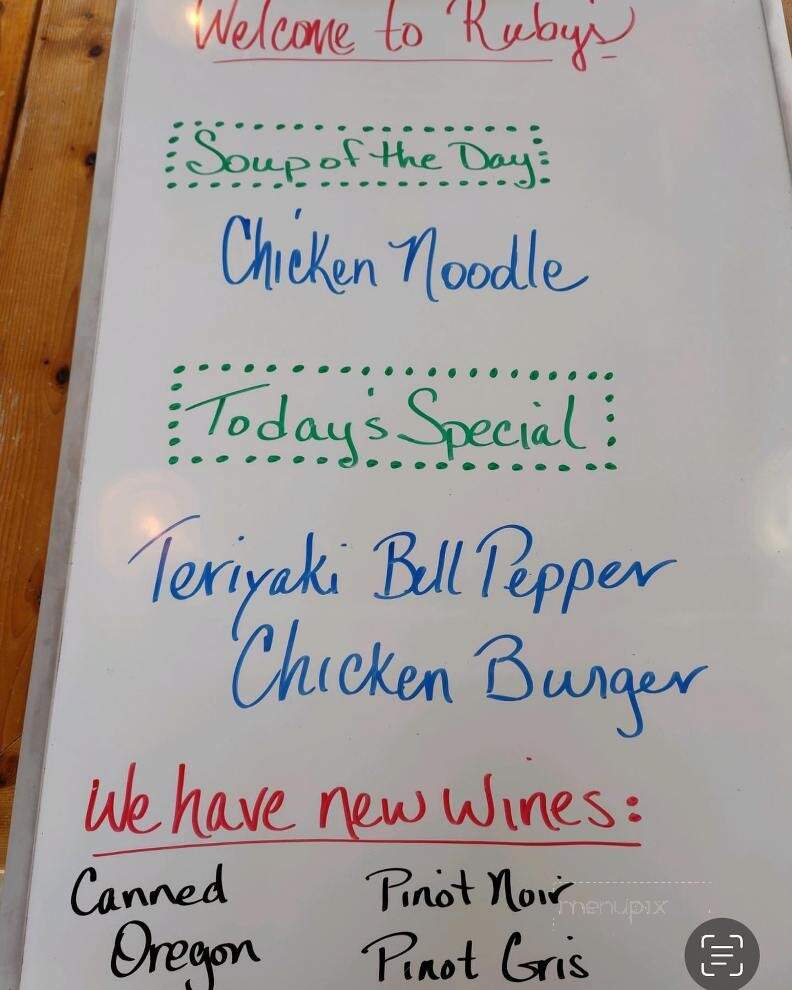 Welcome to Rubys
Soup of the Day
Chicken Noodle
Today's Special
Teriyaki Bell Pepper
Chicken Burger
We have new wines:
Canned Pinot Noir
menupix
Oregon Pinot Gris